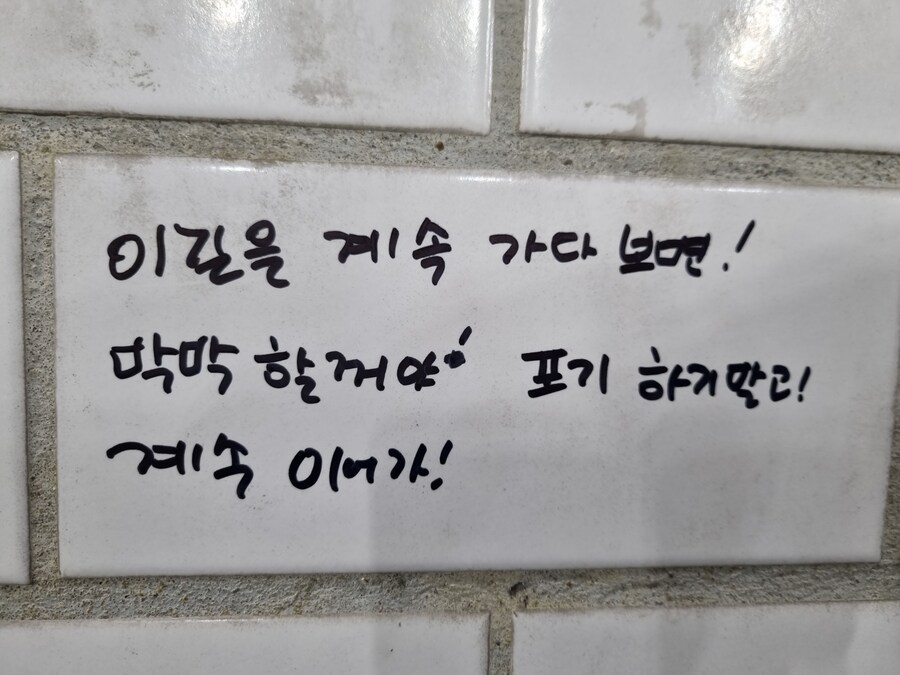 이길을 계속 가다 보면!
막막 할꺼야! 포기 하지말고!
계속 이어가!